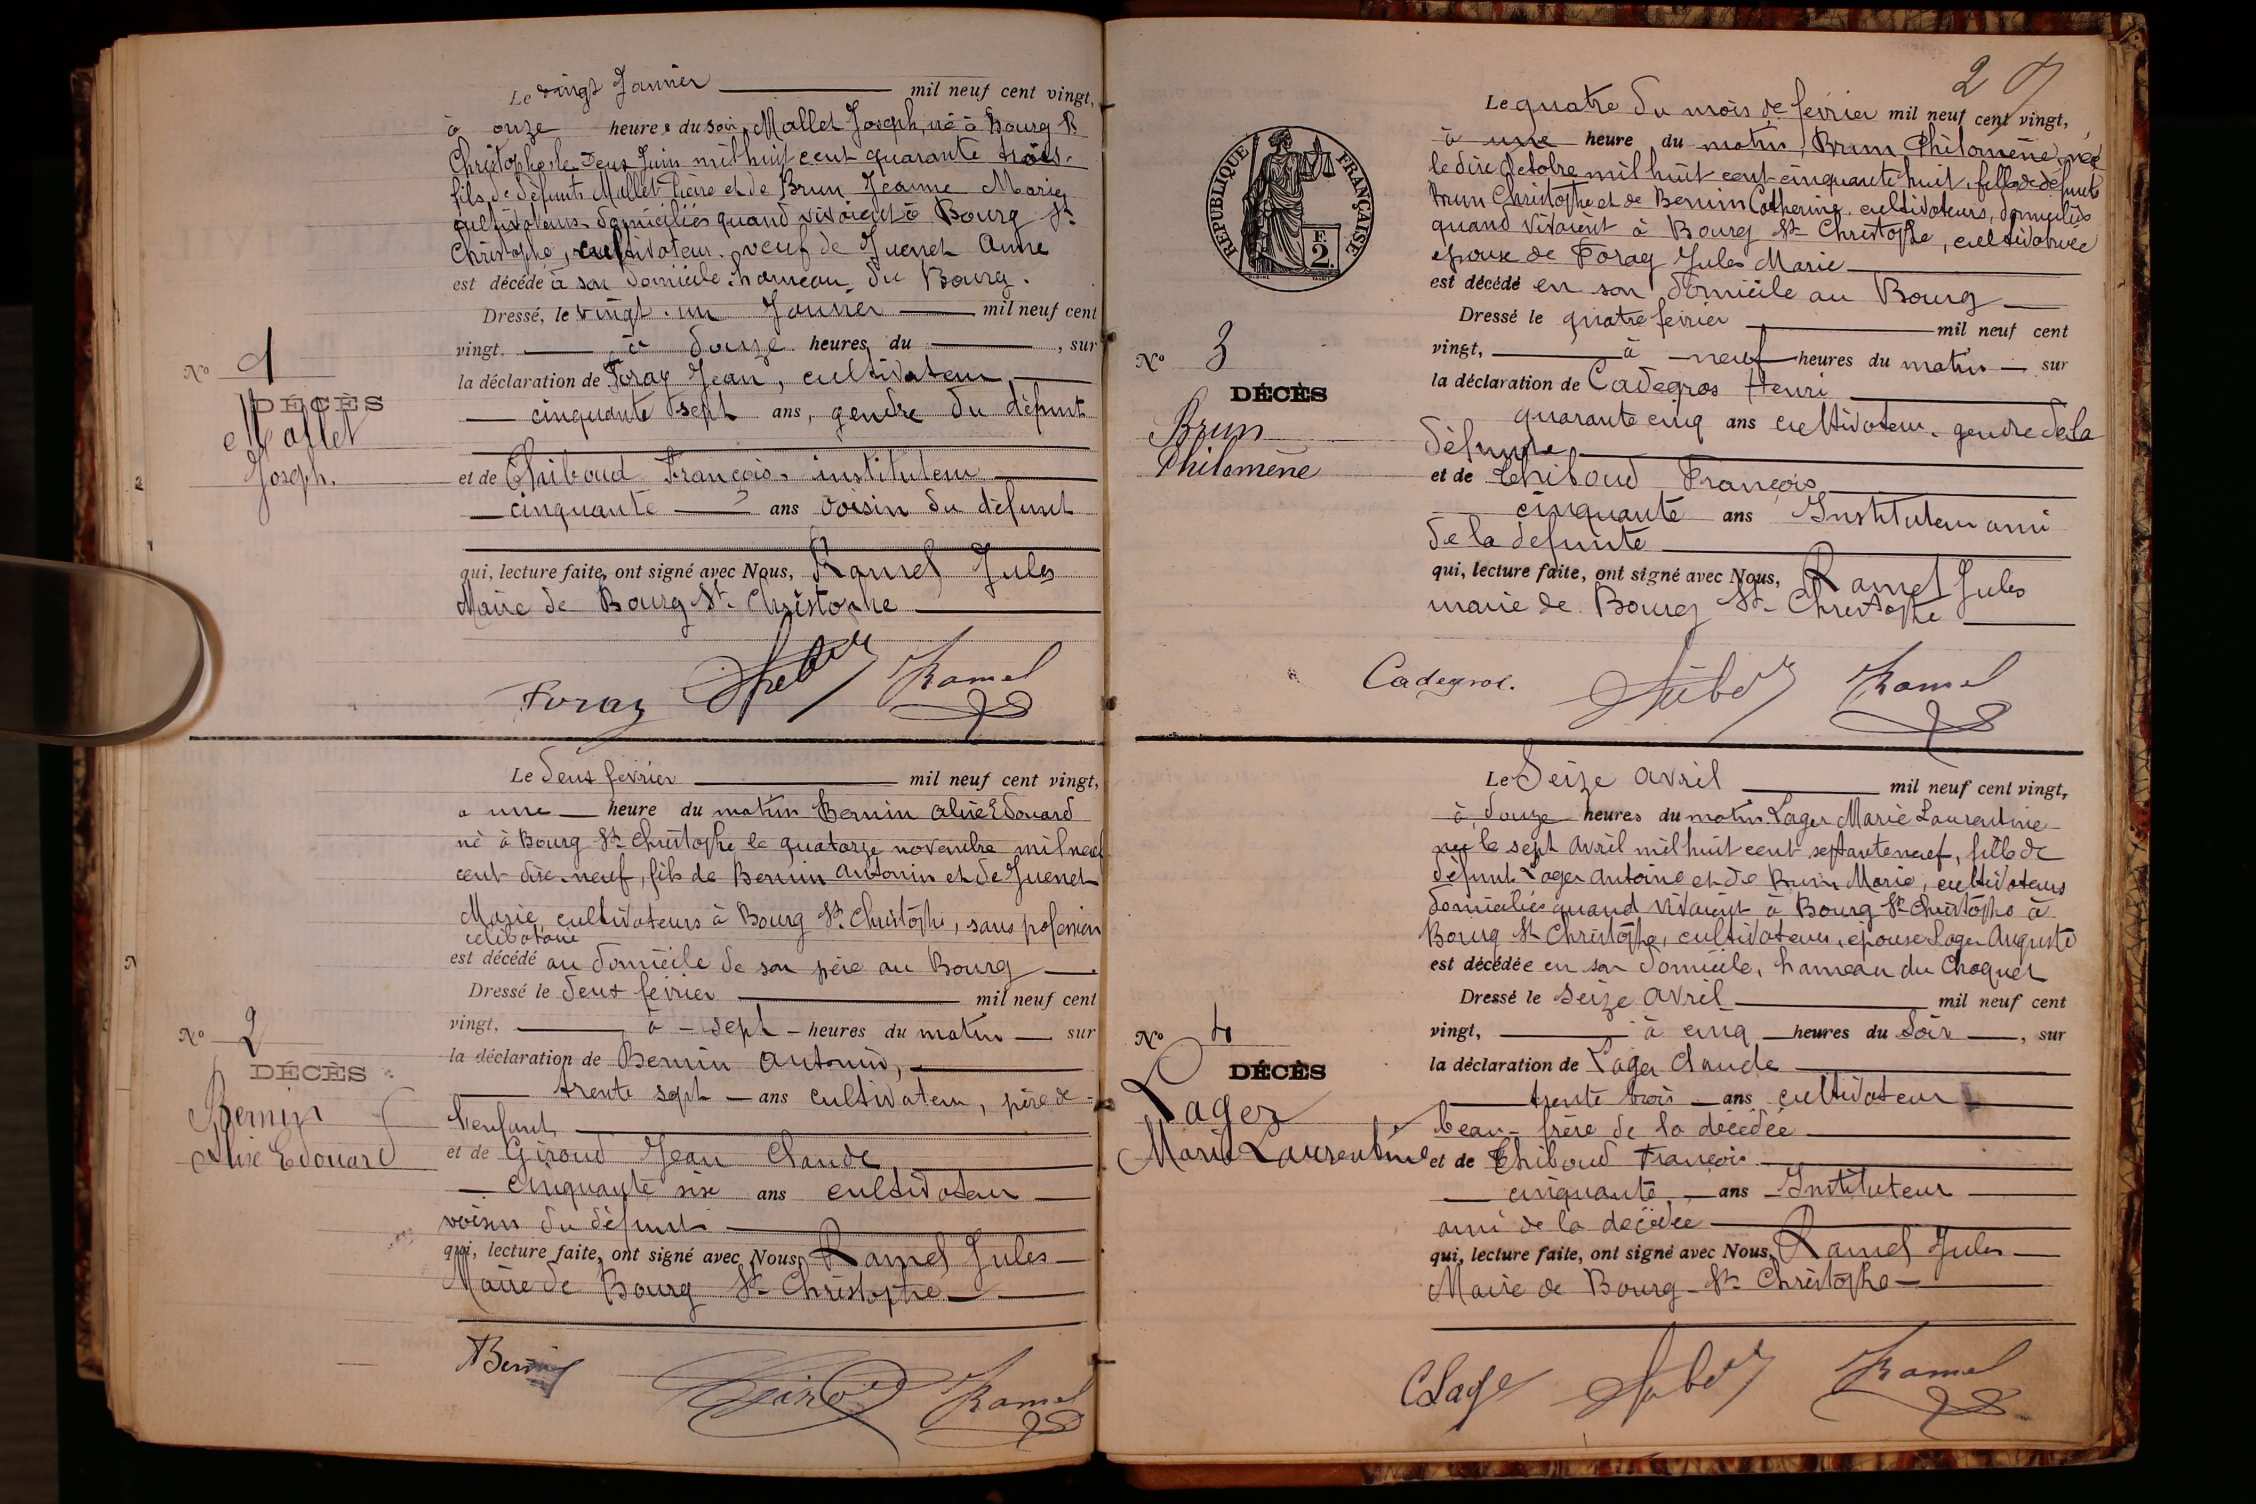 Le vingt Janvier mil neuf cent vingt,
à onze heures du soir, Mallet Joseph, né à Bourg St
Christophe le deux Juin mil huit cent quarante trois,
fils de défunts Mallet Pierre et de Brun Jeanne Marie,
cultivateurs domiciliés quand vivaient à Bourg St
Christophe, cultivateur, veuf de Juenet Anne
est décédé à son domicile, hameau du Bourg.
Dressé, le vingt-un Janvier mil neuf cent
vingt, à douze heures du , sur
la déclaration de Foray Jean, cultivateur,
cinquante sept ans, gendre du défunt
et de Thiboud François, instituteur
cinquante ans voisin du défunt
qui, lecture faite, ont signé avec Nous, Ramel Jules
Maire de Bourg St Christophe
Foray Ramel
No 1
DÉCÈS
Mallet
Joseph.
Le deux février mil neuf cent vingt,
à une heure du matin Bernin Alixe Edouard
né à Bourg St Christophe le quatorze novembre mil neuf
cent dix-neuf, fils de Bernin Antonin et de Juenet
Marie, cultivateurs à Bourg St Christophe, sans profession
célibataire
est décédé au domicile de son père au Bourg
Dressé le deux février mil neuf cent
vingt, à sept heures du matin sur
la déclaration de Bernin Antonin,
trente sept ans cultivateur, père de
l'enfant
et de Giroud Jean Claude,
cinquante six ans cultivateur
voisin du défunt
qui, lecture faite, ont signé avec Nous, Ramel Jules
Maire de Bourg St Christophe
ABernin Giroud Ramel
No 2
DÉCÈS
Bernin
Alixe Edouard
RÉPUBLIQUE FRANÇAISE
F.
2.
Le quatre du mois de février mil neuf cent vingt,
à une heure du matin, Brun Philomène, née
le dix Octobre mil huit cent cinquante huit, fille de défunts
Brun Christophe et de Bernin Catherine, cultivateurs, domiciliés
quand vivaient à Bourg St Christophe, cultivatrice
épouse de Foray Jules Marie
est décédé en son domicile au Bourg
Dressé le quatre février mil neuf cent
vingt, à neuf heures du matin sur
la déclaration de Cadegros Henri
quarante cinq ans cultivateur, gendre de la
défunte
et de Thiboud François
cinquante ans Instituteur ami
de la défunte
qui, lecture faite, ont signé avec Nous, Ramel Jules
maire de Bourg St Christophe
Cadegros. Ramel
No 3
DÉCÈS
Brun
Philomène
Le Seize Avril mil neuf cent vingt,
à douze heures du matin Lager Marie Laurentine
née le sept Avril mil huit cent septante neuf, fille de
défunt Lager Antoine et de Brun Marie, cultivateurs
domiciliés quand vivaient à Bourg St Christophe à
Bourg St Christophe, cultivateur, épouse Lager Auguste
est décédée en son domicile, hameau du Choquet
Dressé le seize Avril mil neuf cent
vingt, à cinq heures du Soir , sur
la déclaration de Lager Claude
trente trois ans cultivateur
beau-frère de la décédée
et de Thiboud François
cinquante ans Instituteur
ami de la décédée
qui, lecture faite, ont signé avec Nous, Ramel Jules
Maire de Bourg St Christophe
CLager Ramel
No 4
DÉCÈS
Lager
Marie Laurentine